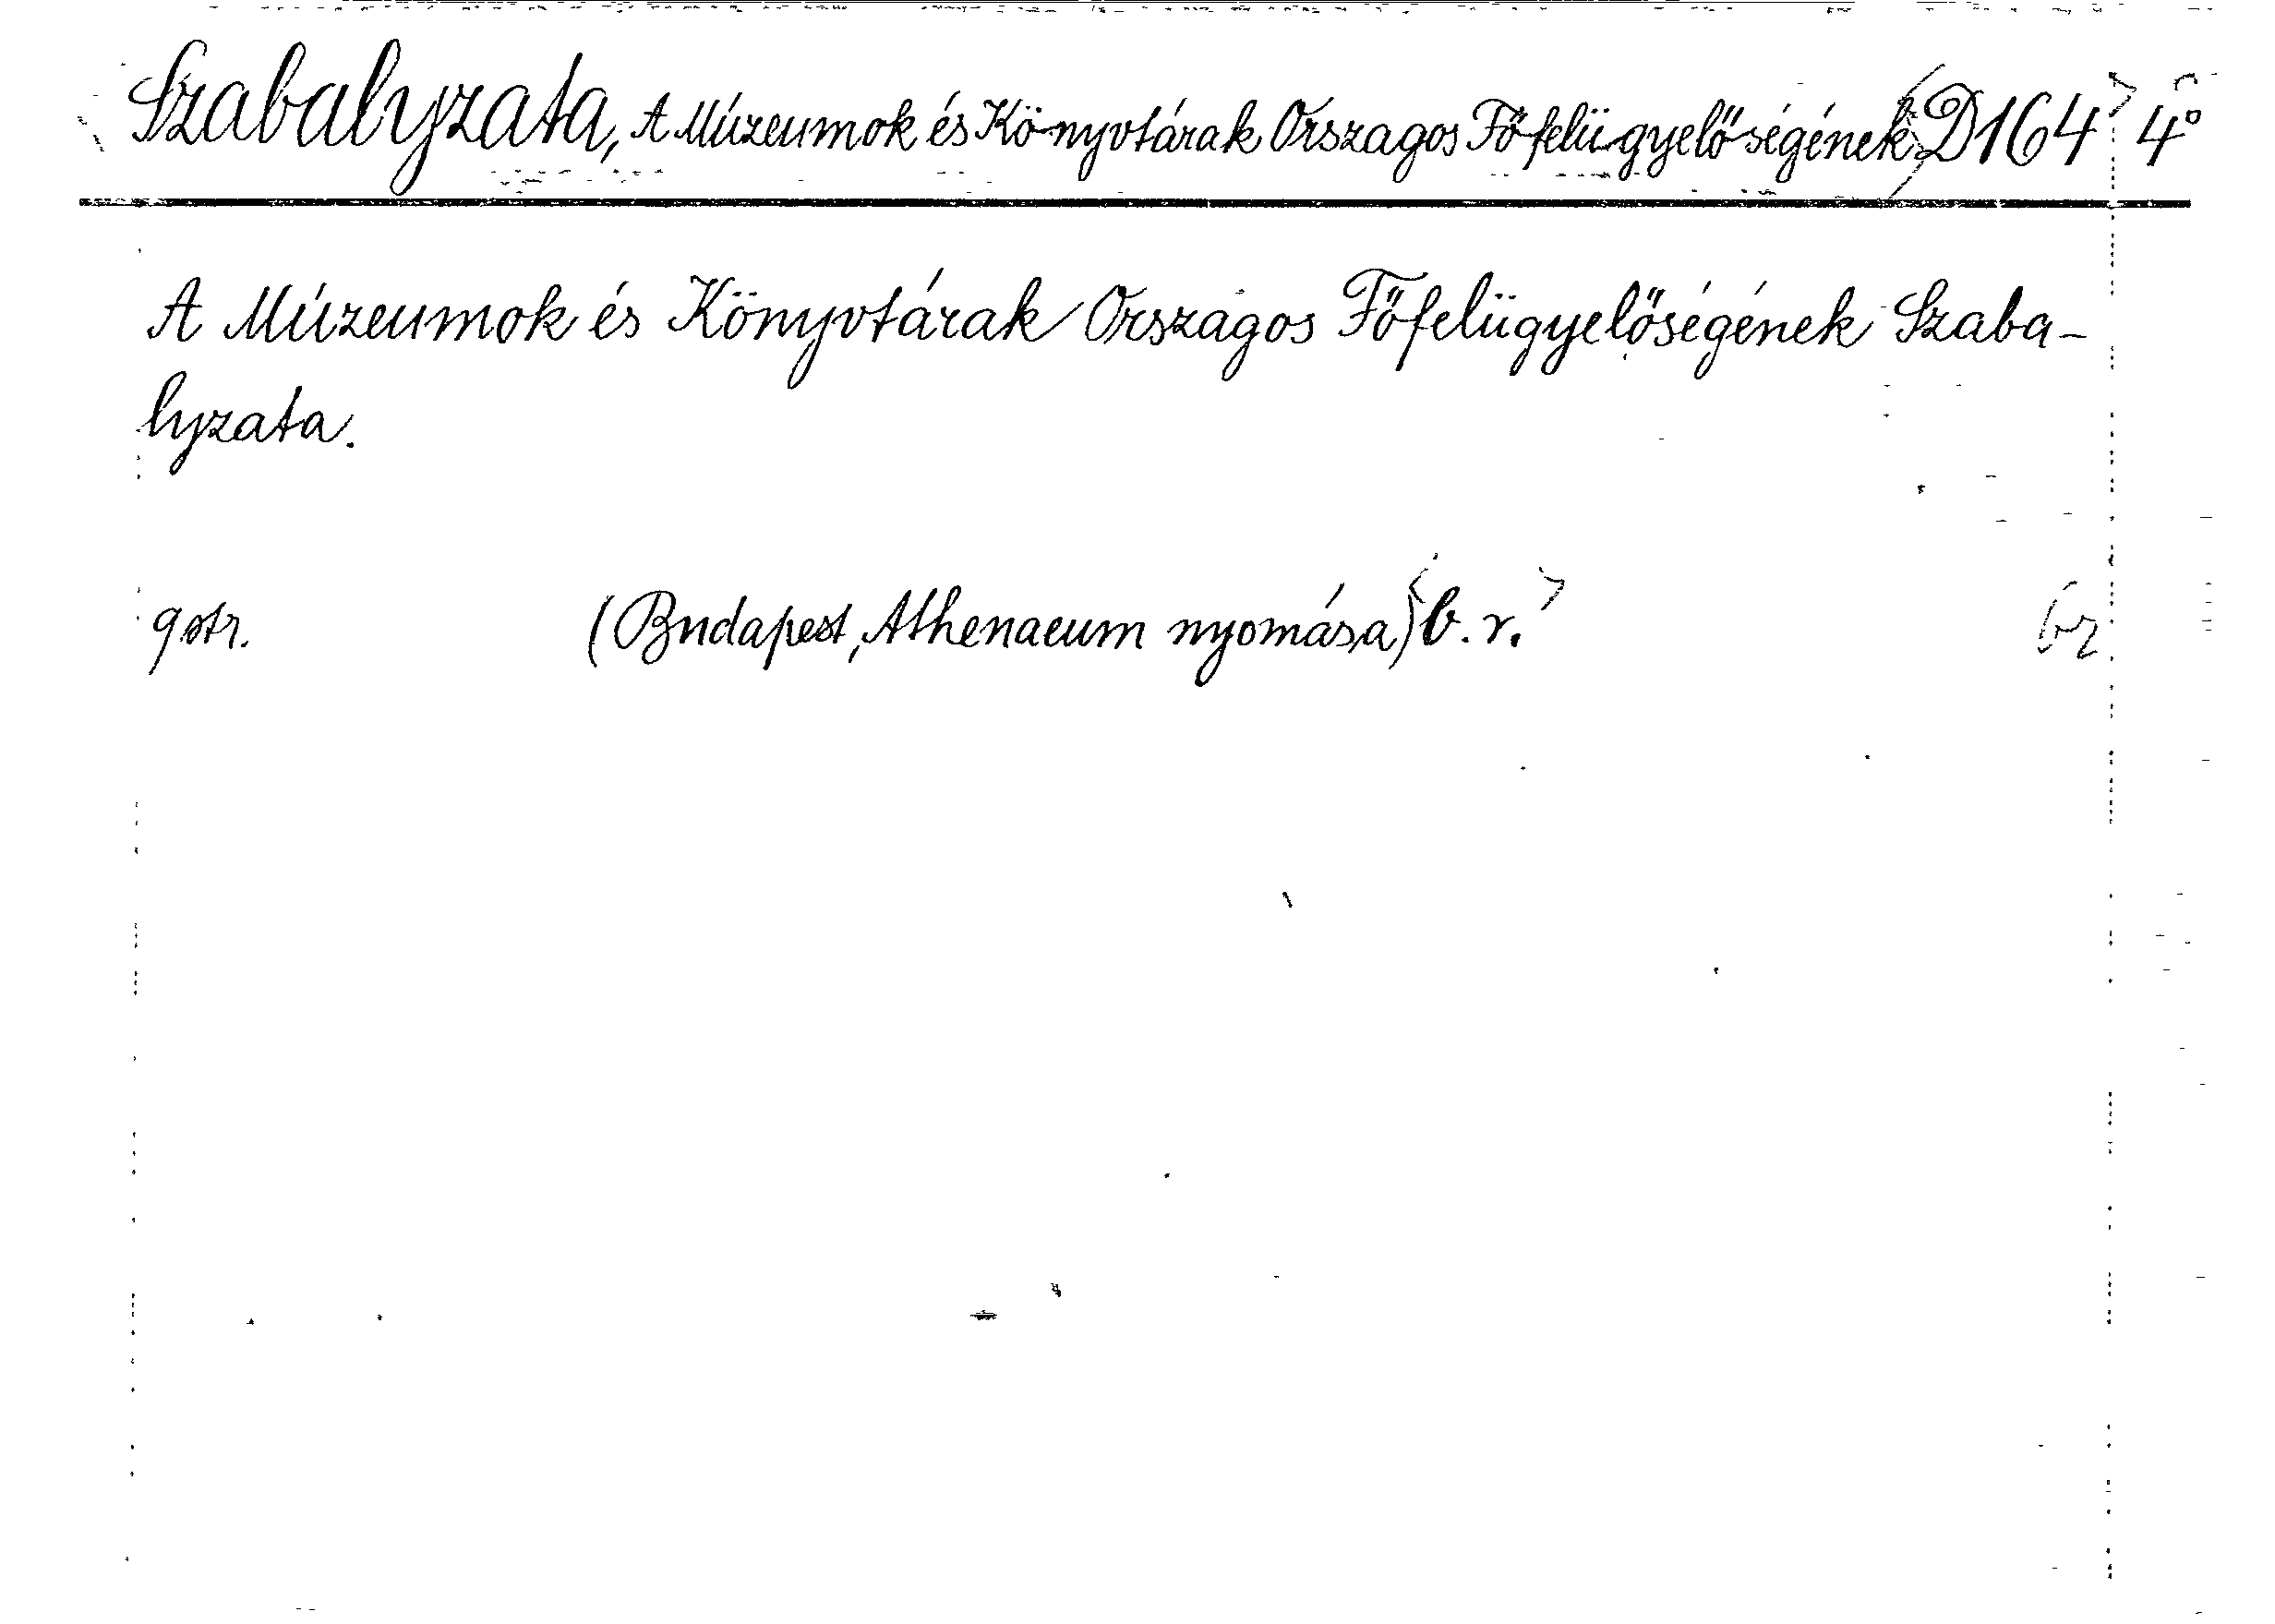 Szabalyzata, A Múzeumok és Könyvtárak Országos Főfelügyelőségének D164 4°
A Múzeumok és Könyvtárak Országos Főfelügyelőségének Szaba-
lyzata.
9 str. (Budapest, Athenaeum nyomása) b. r.